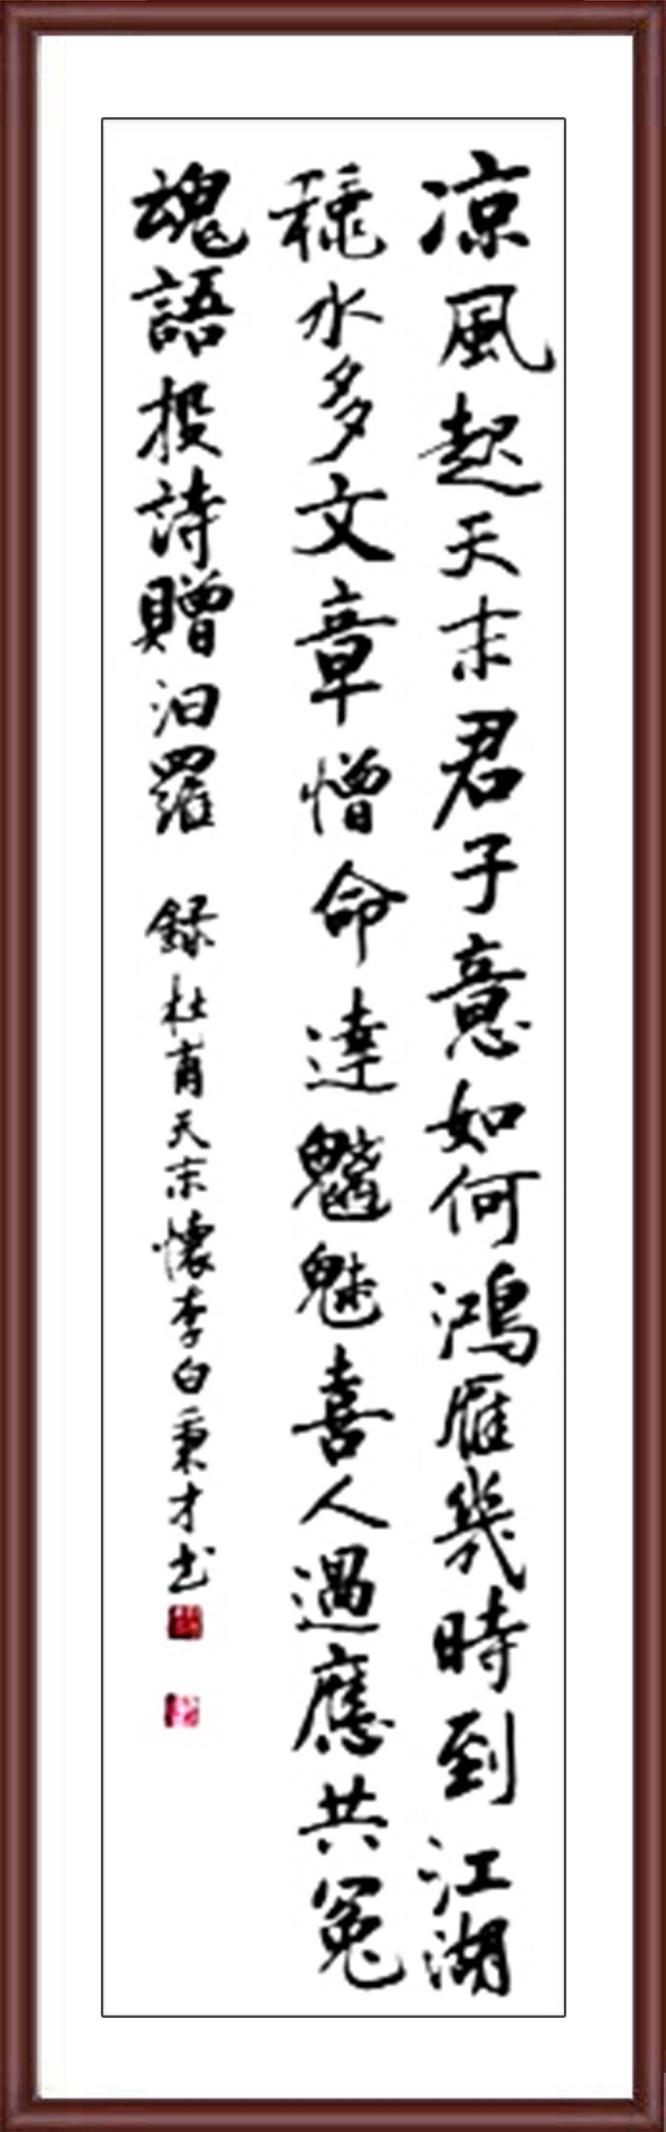 凉風起天末君子意如何鴻雁幾時到江湖
穐水多文章憎命達魑魅喜人過應共冤
魂語投詩贈汨羅 録杜甫天末懷李白秉才书